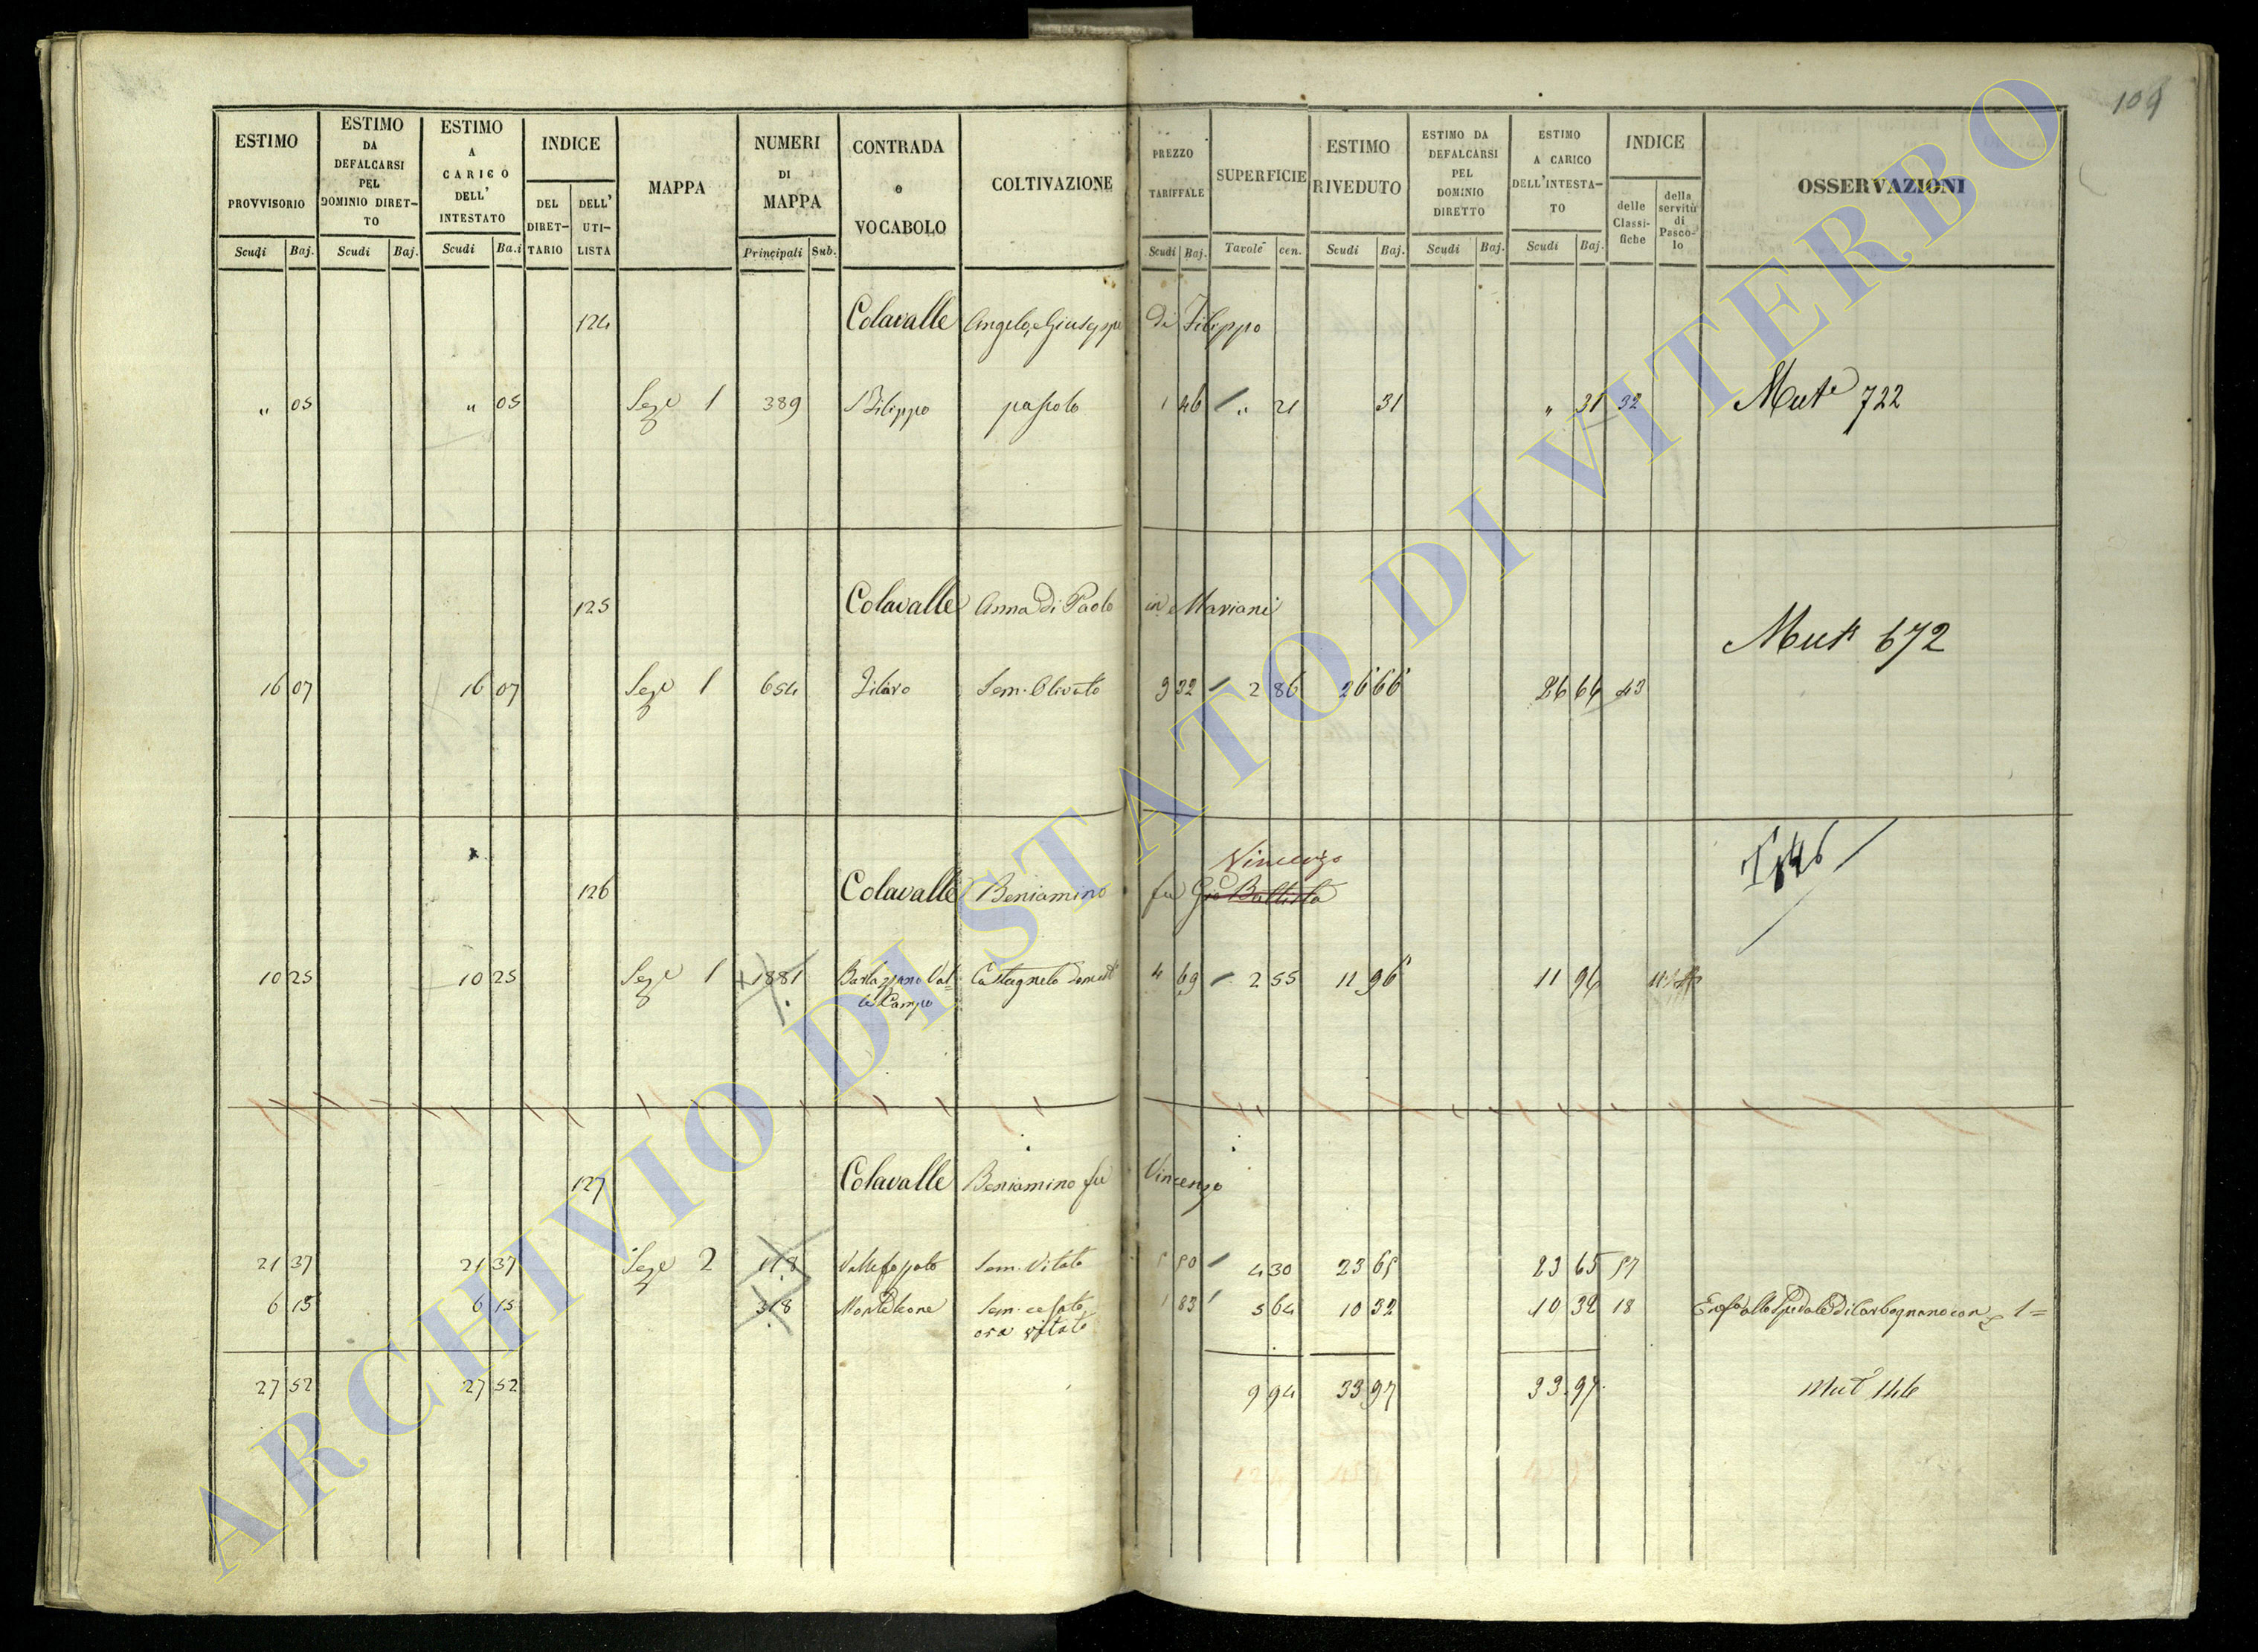 109
ESTIMO PROVVISORIO Scudi Baj. ESTIMO DA DEFALCARSI PEL DOMINIO DIRET-TO Scudi Baj. ESTIMO A CARICO DELL' INTESTATO Scudi Ba.i INDICE DEL DIRET-TARIO DELL' UTI-LISTA MAPPA NUMERI DI MAPPA Principali Sub. CONTRADA o VOCABOLO COLTIVAZIONE PREZZO TARIFFALE Scudi Baj. SUPERFICIE Tavole cen. ESTIMO RIVEDUTO Scudi Baj. ESTIMO DA DEFALCARSI PEL DOMINIO DIRETTO Scudi Baj. ESTIMO A CARICO DELL'INTESTA-TO Scudi Baj. INDICE delle Classi-fiche della servitù di Pasco-lo OSSERVAZIONI
124 Colavalle Angelo, e Giuseppe di Filippo
" 05 " 05 Sezе 1 389 S Filippo pascolo 1 46 " 21 31 " 31 32 Mute 722
125 Colavalle Anna di Paolo in Mariani
Mut 672
16 07 16 07 Seze 1 654 Sem. Olivato 9 32 2 86 26 66 26 66 43
Vincenzo
126 Colavalle Beniamino fu Gio Battista
10 25 10 25 Seze 1 1881 Castagneto 4 69 2 55 11 96 11 96
127 Colavalle Beniamino fu Vincenzo
21 37 21 37 Seze 2 118 Sem. Vitato 5 50 4 30 23 65 23 65 57
6 15 6 15 318 Monteleone Sem. 1 83 5 64 10 32 10 32 18
ora vitato
27 52 27 52 9 94 33 97 33 97 Mut 146
ARCHIVIO DI STATO DI VITERBO